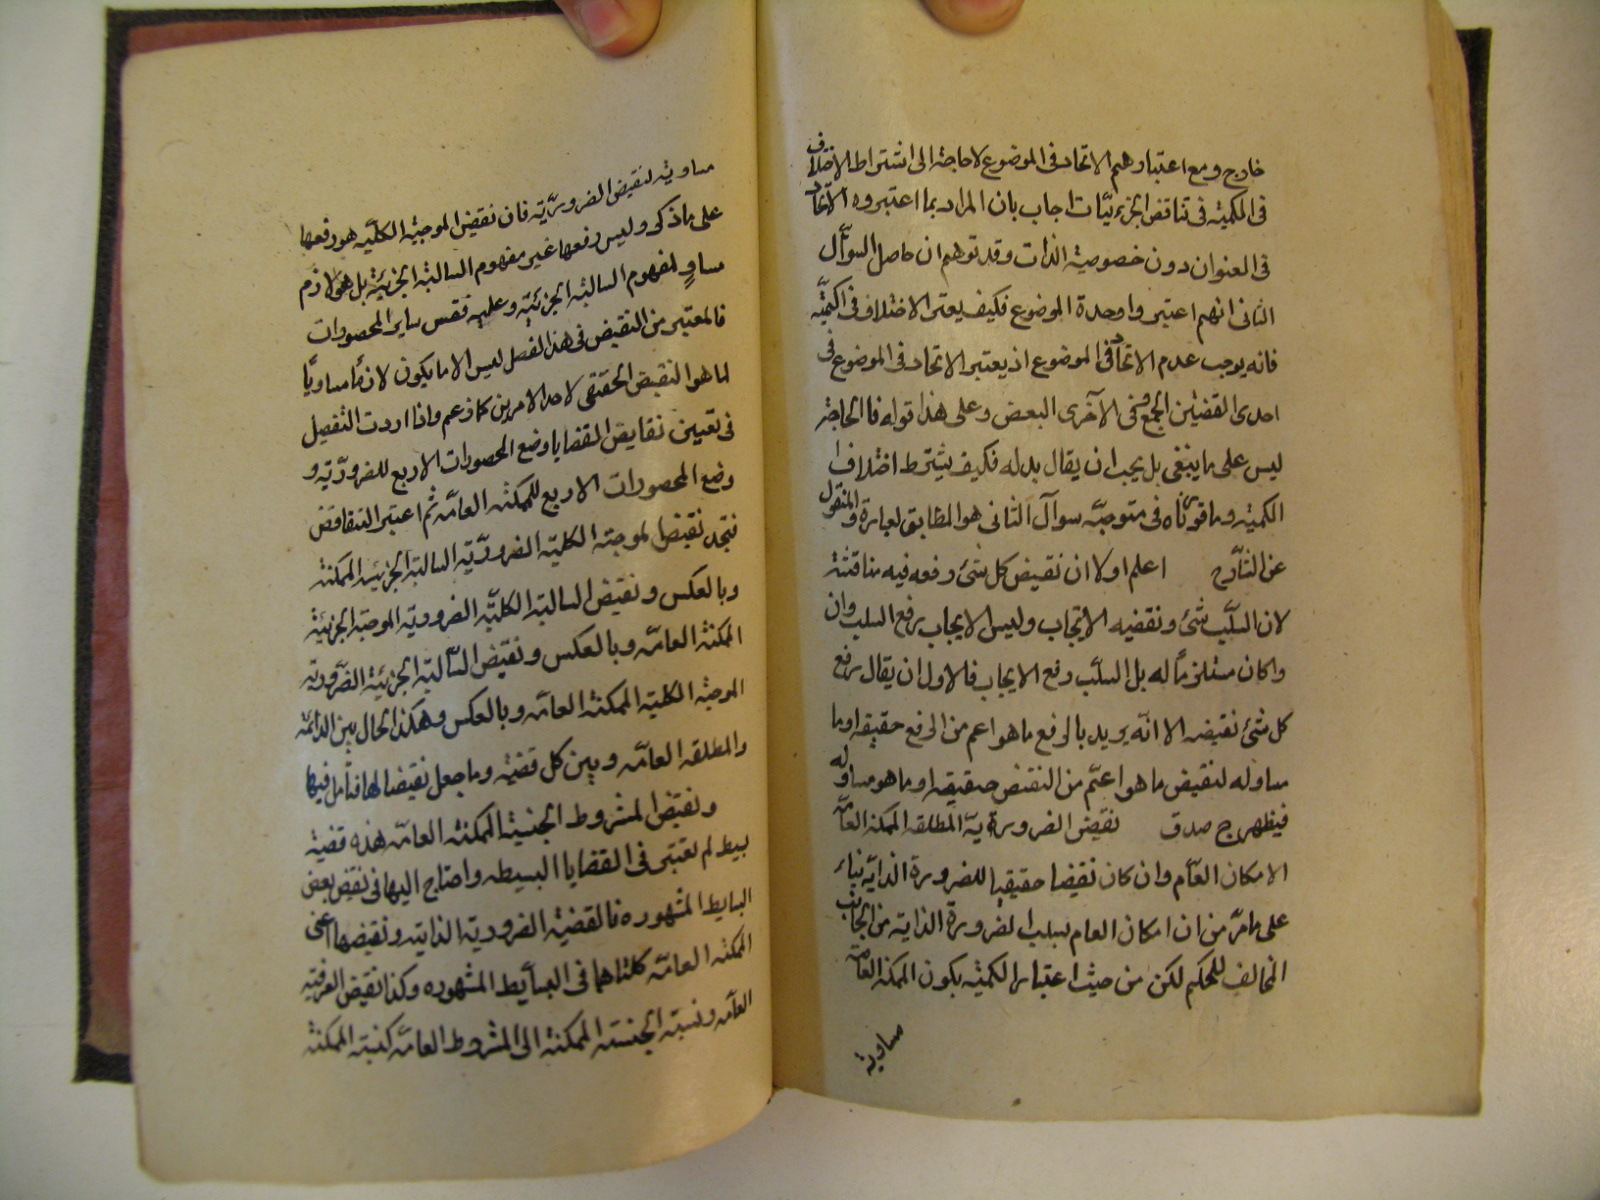 خارج ومع اعتبارهم الاتحاد فى الموضوع لا حاجة الى اشتراط الاختلاف
فى الكمية فى تناقض الجزئيات اجاب بان المراد بما اعتبروه الاتحاد
فى العنوان دون خصوصية الذات وقد توهم ان حاصل السوآل
الثانى انهم اعتبروا وحدة الموضوع فكيف يعتبر الاختلاف فى الكميّة
فانه يوجب عدم الاتحاد فى الموضوع اذ يعتبر الاتحاد فى الموضوع فى
احدى القضيتين الجمع وفى الآخرى البعض وعلى هذا قوله فا الحاجة
ليس على ما ينبغى بل يجب ان يقال بدله فكيف يشترط اختلاف
الكمية وما قررناه فى متوجيه سوآل الثانى هو المطابق لعبارة والمنقول
عن الشارح اعلم اولا ان نقيض كل شئ رفعه فيه مناقشة
لان السلب شئ ونقضيه الايجاب وليس الايجاب برفع السلب وان
وا كان مستلزماً له بل السلب رفع الايجاب فلاولى ان يقال رفع
كل شئ نقيضه الا انه يريد بالرفع ما هو اعم من الرفع حقيقه او ما
مساو له لنقيض ما هو اعم من النقيض حقيقة او ما هو مساو له
فيظهر ح صدق نقيض الضرورية المطلقه الممكنة العامة
الامكان العام وان كان نقيضا حقيقيا للضرورة الذاتيه بناء
على ما مر من ان امكان العام سلب الضرورة الذاتية من الجانب
المخالف للحكم لكن من حيث اعتبار الكمية يكون الممكنة العامة
مساوية
مساوية لنقيض الضرورية فان نقيض الموجبة الكلية هو رفعها
على ما ذكر وليس رفعها غير مفهوم السالبة الجزئية بل هو لازم
مساوٍ لمفهوم السالبة الجزئية وعليه فقس ساير المحصورات
فالمعتبر من النقيض فى هذا الفصل ليس الا ما يكون لازماً مساوياً
لما هو النقيض الحقيقى لاحد الامرين كما زعم واذا اردت التفصيل
فى تعيين نقايض القضايا وضع المحصورات الاربع للضرورية و
وضع المحصورات الاربع للممكنة العامة ثم اعتبر التناقض
نتجد نقيض الموجبة الكلية الضرورية السالبة الجزئية الممكنة
وبالعكس ونقيض السالبة الكلية الضرورية الموجبة الجزئية
الممكنة العامة وبالعكس ونقيض السالبة الجزئية الضرورية
الموجبة الكلية الممكنة العامة وبالعكس وهكذا الحال بين الدائمة
والمطلقة العامة وبين كل قضية وما جعل نقيضا لها فتامل فيها
ونقيض المشروط الحينية الممكنة العامة هذه قضية
بسيط لم تعتبر فى القضايا البسيطه واحتاج اليها فى نقيض بعض
البسايط المشهوره فالقضية الضرورية الذاتية ونقيضها اعنى
الممكنه العامة كلتاهما فى البسآيط المشهوره وكذا نقيض العرفية
العامه ونسبة الحينية الممكنة الى المشروط العامة كنسبة الممكنة